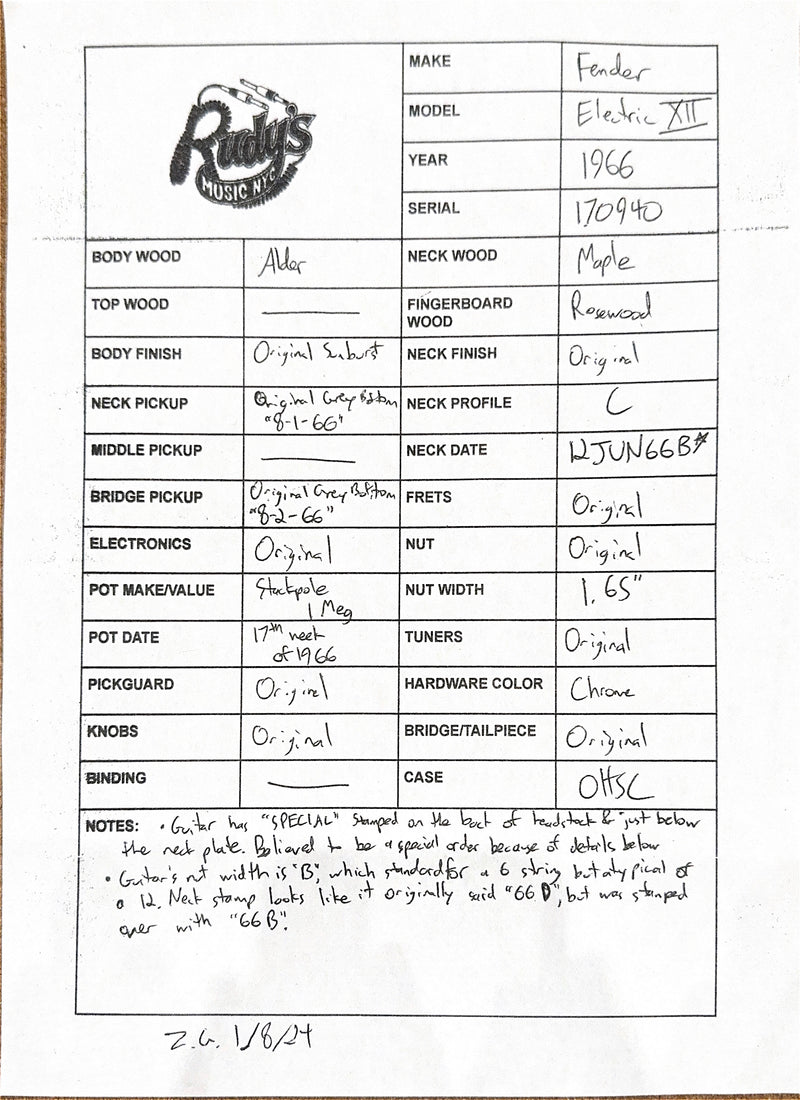 Rudy's
MUSIC NYC
MAKE Fender
MODEL Electric XII
YEAR 1966
SERIAL 170940
BODY WOOD Alder NECK WOOD Maple
TOP WOOD FINGERBOARD
WOOD Rosewood
BODY FINISH Original Sunburst NECK FINISH Original
NECK PICKUP Original Grey Bottom
"8-1-66" NECK PROFILE C
MIDDLE PICKUP NECK DATE 12JUN66B*
BRIDGE PICKUP Original Grey Bottom
"8-2-66" FRETS Original
ELECTRONICS Original NUT Original
POT MAKE/VALUE Stackpole
1 Meg NUT WIDTH 1.65"
POT DATE 17th week
of 1966 TUNERS Original
PICKGUARD Original HARDWARE COLOR Chrome
KNOBS Original BRIDGE/TAILPIECE Original
BINDING CASE OHSC
NOTES: • Guitar has "SPECIAL" stamped on the back of headstock & just below
the neck plate. Believed to be a special order because of details below
• Guitar's nut width is "B", which standard for a 6 string but atypical of
a 12. Neck stamp looks like it originally said "66 D", but was stamped
over with "66B".
Z.G. 1/8/24